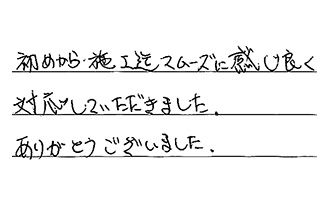 初めから施工迄スムーズに感じ良く
対応していただきました。
ありがとうございました。